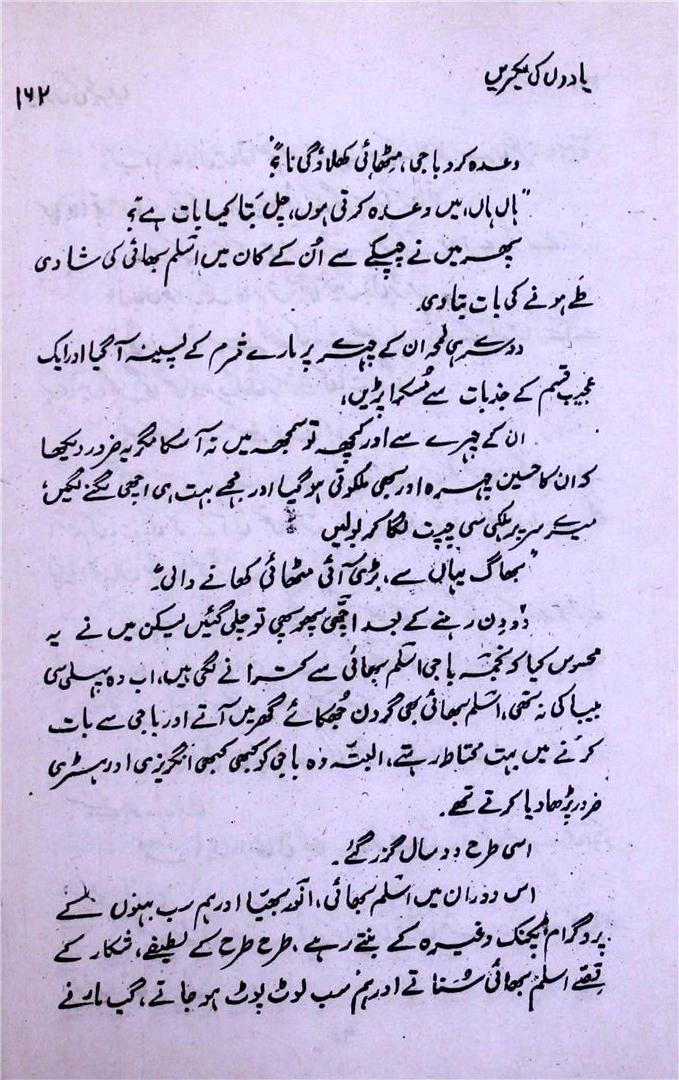 یادوں کی لکیریں
۱۶۲
وعدہ کرو باجی، مٹھائی کھلاؤ گی نا؟"
"ہاں ہاں، میں وعدہ کرتی ہوں، چل بَتا کیا بات ہے؟"
پھر میں نے چپکے سے اُن کے کان میں اسلم بھائی کی شادی
طے ہونے کی بات بتا دی۔
دوسرے ہی لمحہ ان کے چہرے پر مارے شرم کے پسینہ آ گیا اور ایک
عجیب قسم کے جذبات سے مُسکرا پڑیں،
ان کے چہرے سے اور کچھ تو سمجھ میں نہ آ سکا مگر یہ ضرور دیکھا
کہ ان کا حسین چہرہ اور بھی ملکوتی ہو گیا اور مجھے بہت ہی اچھی لگنے لگیں،
میرے سر پر ہلکی سی چپت لگا کر بولیں
"بھاگ یہاں سے، بڑی آئی مٹھائی کھانے والی۔"
دو دن رہنے کے بعد اچھی پھوپھی تو چلی گئیں لیکن میں نے یہ
محسوس کیا کہ نجمہ باجی اسلم بھائی سے کترانے لگی ہیں، اب وہ پہلی سی
بیباکی نہ تھی، اسلم بھائی بھی گردن جُھکائے گھر میں آتے اور باجی سے بات
کرنے میں بہت محتاط رہتے، البتّہ وہ باجی کو کبھی کبھی انگریزی اور ہسٹری
ضرور پڑھا دیا کرتے تھے۔
اسی طرح دو سال گزر گئے۔
اس دوران میں اسلم بھائی، انور بھیّا اور ہم سب بہنوں کے
پروگرام پکنک وغیرہ کے بنتے رہے، طرح طرح کے لطیفے، شکار کے
قصّے اسلم بھائی سُناتے اور ہم سب لوٹ پوٹ ہو جاتے، گپ مارنے